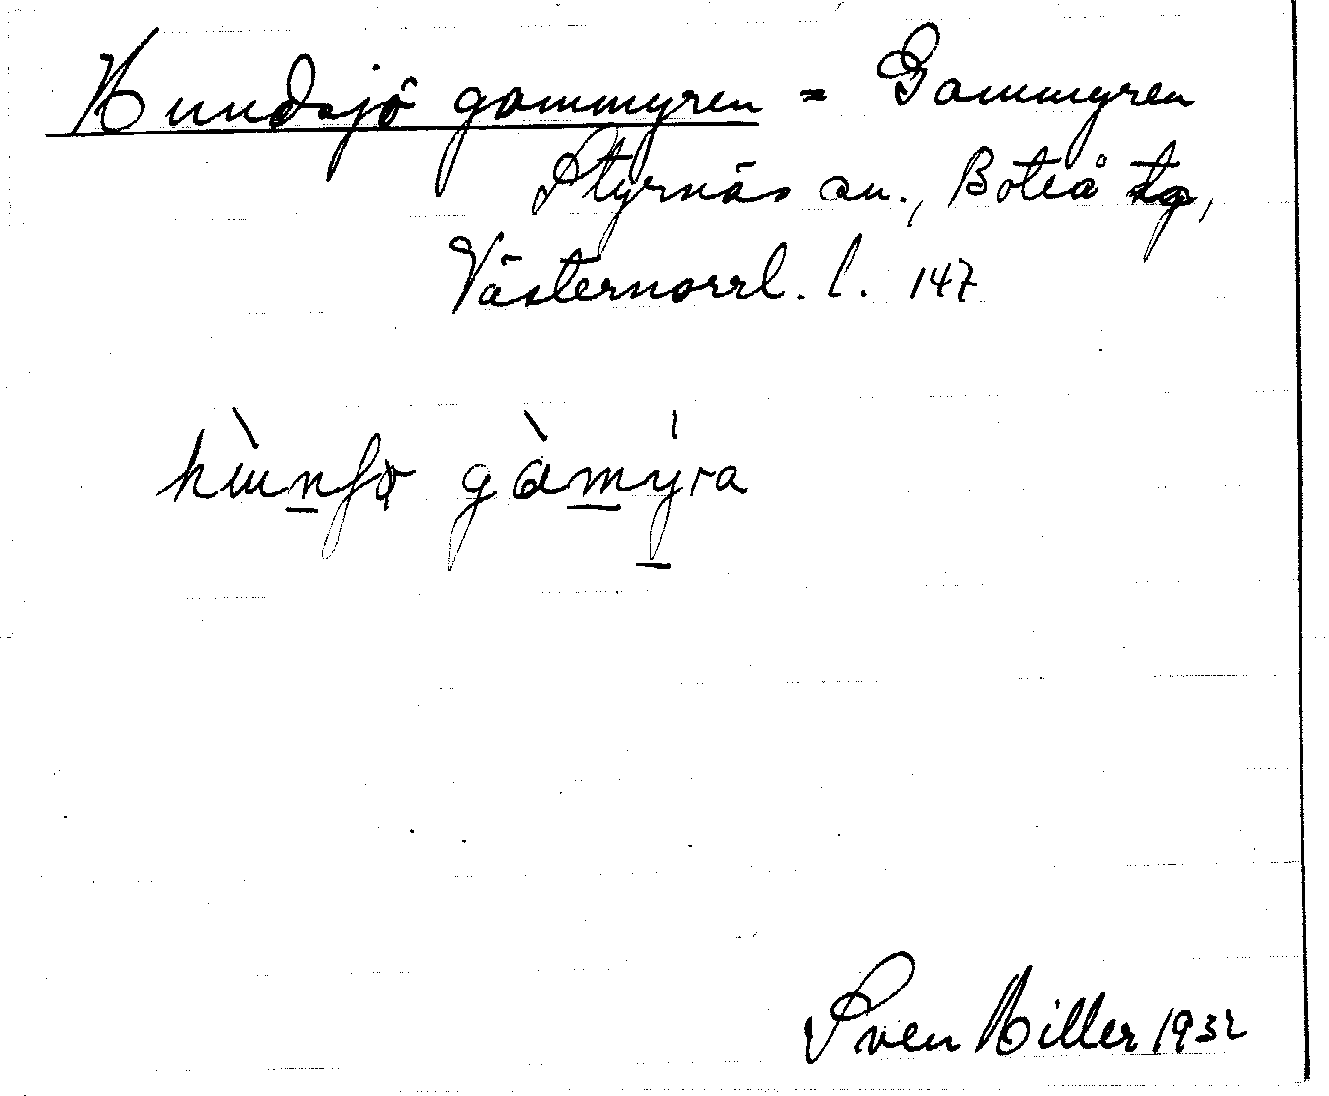 Hundsjö gammyren = Gammyren
Styrnäs sn., Boteå tg,
Västernorrl. l. 147
hùnʃø gàmýra
Sven Hiller 1932